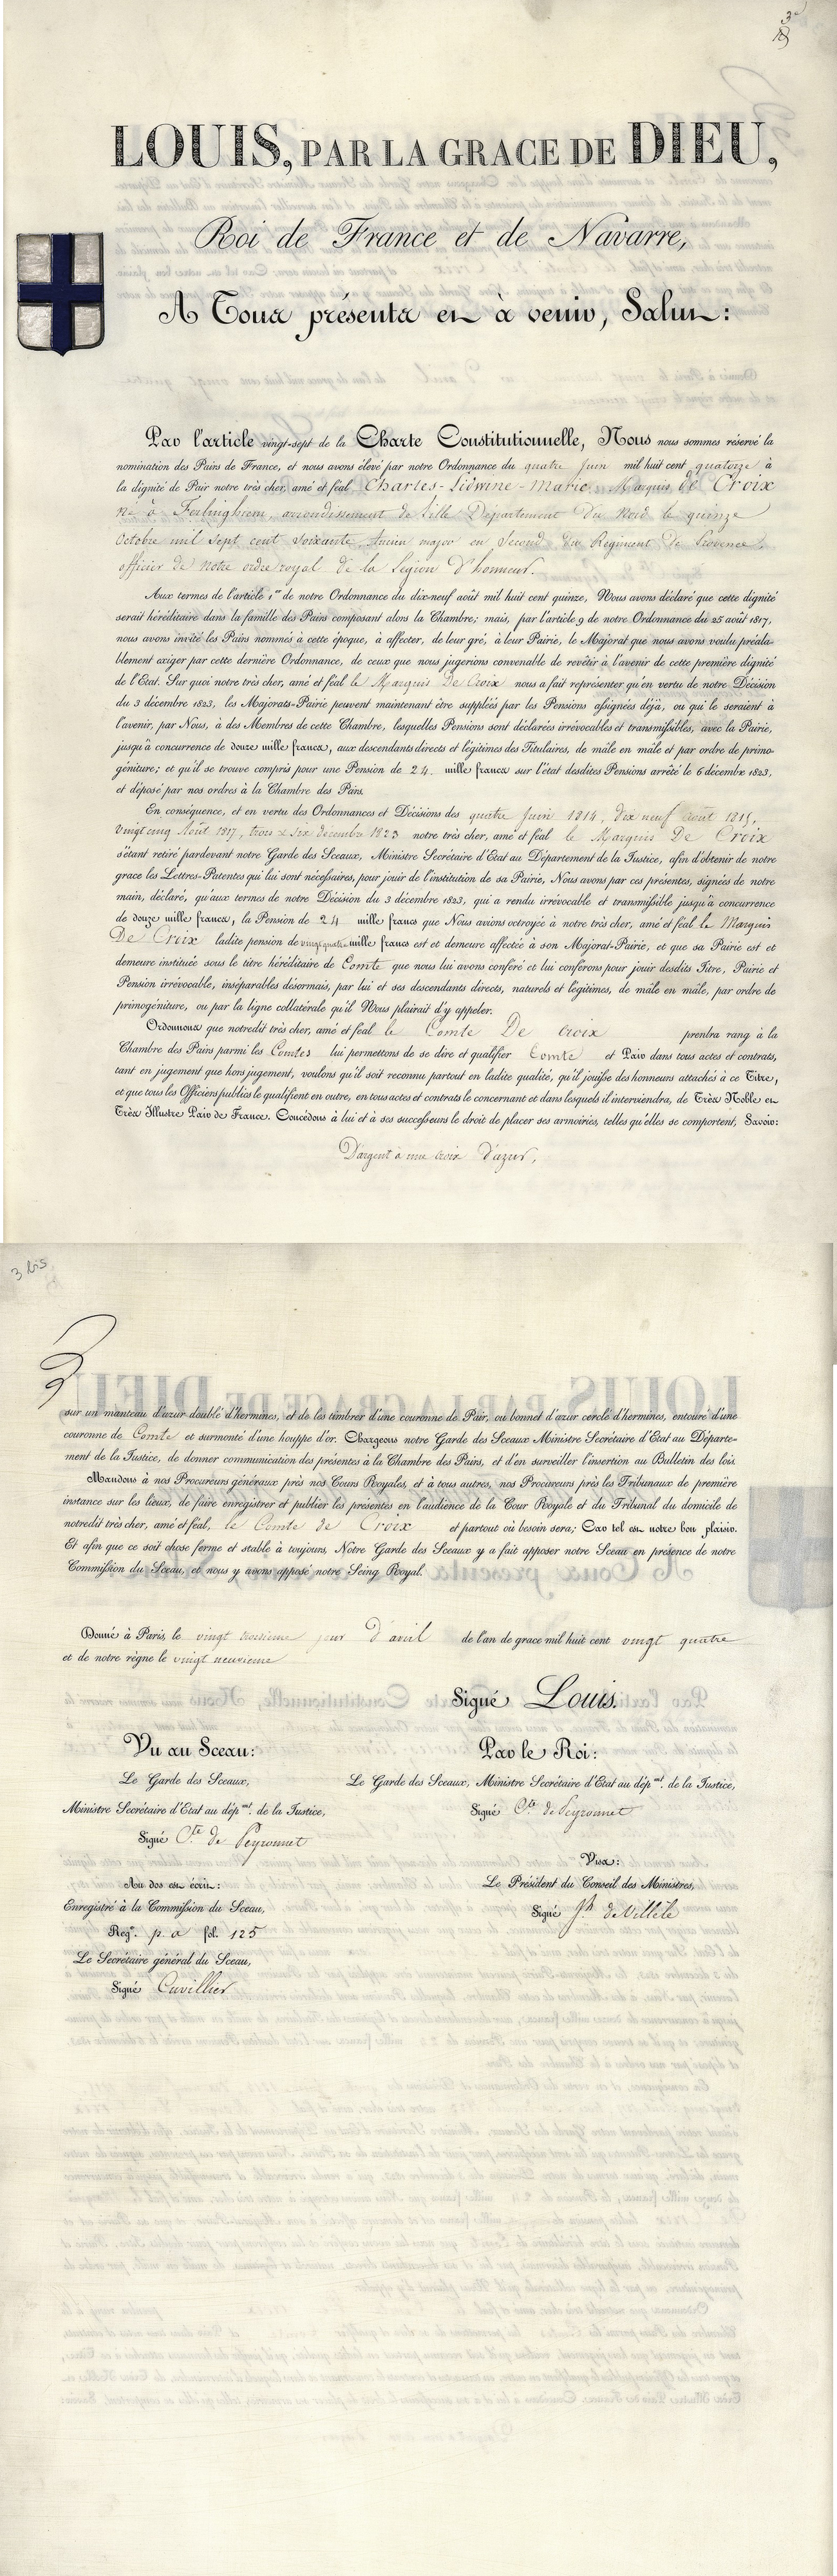 3e
18
LOUIS, PAR LA GRACE DE DIEU,
Roi de France et de Navarre,
A Tous présents et à venir, Salut:
Par l'article vingt-sept de la Charte Constitutionnelle, Nous nous sommes réservé la
nomination des Pairs de France, et nous avons élevé par notre Ordonnance du quatre Juin mil huit cent quatorze à
la dignité de Pair notre très cher, amé et féal Charles-Lidwine-Marie Marquis de Croix
né à arrondissement de Lille Département du Nord le quinze
Octobre mil sept cent soixante, Ancien major en second du Régiment de Provence,
officier de notre ordre royal de la Légion d'honneur.
Aux termes de l'article 1er de notre Ordonnance du dix-neuf août mil huit cent quinze, Nous avons déclaré que cette dignité
serait héréditaire dans la famille des Pairs composant alors la Chambre; mais, par l'article 9 de notre Ordonnance du 25 août 1817,
nous avons invité les Pairs nommés à cette époque, à affecter, de leur gré, à leur Pairie, le Majorat que nous avons voulu préala-
blement exiger par cette dernière Ordonnance, de ceux que nous jugerions convenable de revêtir à l'avenir de cette première dignité
de l'Etat. Sur quoi notre très cher, amé et féal le Marquis De Croix nous a fait représenter qu'en vertu de notre Décision
du 3 décembre 1823, les Majorats-Pairie peuvent maintenant être suppléés par les Pensions assignées déjà, ou qui le seraient à
l'avenir, par Nous, à des Membres de cette Chambre, lesquelles Pensions sont déclarées irrévocables et transmissibles, avec la Pairie,
jusqu'à concurrence de douze mille francs, aux descendants directs et légitimes des Titulaires, de mâle en mâle et par ordre de primo-
géniture; et qu'il se trouve compris pour une Pension de 24 mille francs sur l'état desdites Pensions arrêté le 6 décembre 1823,
et déposé par nos ordres à la Chambre des Pairs.
En conséquence, et en vertu des Ordonnances et Décisions des quatre Juin 1814, dix neuf Août 1815,
vingt cinq Août 1817, trois & six décembre 1823 notre très cher, amé et féal le Marquis De Croix
s'étant retiré pardevant notre Garde des Sceaux, Ministre Secrétaire d'Etat au Département de la Justice, afin d'obtenir de notre
grace les Lettres-Patentes qui lui sont nécessaires, pour jouir de l'institution de sa Pairie, Nous avons par ces présentes, signées de notre
main, déclaré, qu'aux termes de notre Décision du 3 décembre 1823, qui a rendu irrévocable et transmissible jusqu'à concurrence
de douze mille francs, la Pension de 24 mille francs que Nous avions octroyée à notre très cher, amé et féal le Marquis
De Croix ladite pension de vingt quatre mille francs est et demeure affectée à son Majorat-Pairie, et que sa Pairie est et
demeure instituée sous le titre héréditaire de Comte que nous lui avons conféré et lui conférons pour jouir desdits Titre, Pairie et
Pension irrévocable, inséparables désormais, par lui et ses descendants directs, naturels et légitimes, de mâle en mâle, par ordre de
primogéniture, ou par la ligne collatérale qu'il Nous plairait d'y appeler.
Ordonnons que notredit très cher, amé et féal le Comte De Croix prendra rang à la
Chambre des Pairs parmi les Comtes lui permettons de se dire et qualifier Comte et Pair dans tous actes et contrats,
tant en jugement que hors jugement, voulons qu'il soit reconnu partout en ladite qualité, qu'il jouisse des honneurs attachés à ce Titre,
et que tous les Officiers publics le qualifient en outre, en tous actes et contrats le concernant et dans lesquels il interviendra, de Très Noble et
Très Illustre Pair de France. Concédons à lui et à ses successeurs le droit de placer ses armoiries, telles qu'elles se comportent, Savoir:
D'argent à une croix d'azur,
3 bis
sur un manteau d'azur doublé d'hermines, et de les timbrer d'une couronne de Pair, ou bonnet d'azur cerclé d'hermines, entouré d'une
couronne de Comte et surmonté d'une houppe d'or. Chargeons notre Garde des Sceaux Ministre Secrétaire d'Etat au Départe-
ment de la Justice, de donner communication des présentes à la Chambre des Pairs, et d'en surveiller l'insertion au Bulletin des lois.
Mandons à nos Procureurs généraux près nos Cours Royales, et à tous autres, nos Procureurs près les Tribunaux de première
instance sur les lieux, de faire enregistrer et publier les présentes en l'audience de la Cour Royale et du Tribunal du domicile de
notredit très cher, amé et féal, le Comte de Croix et partout où besoin sera; Car tel est notre bon plaisir.
Et afin que ce soit chose ferme et stable à toujours, Notre Garde des Sceaux y a fait apposer notre Sceau en présence de notre
Commission du Sceau, et nous y avons apposé notre Seing Royal.
Donné à Paris, le vingt troisième jour d'avril de l'an de grace mil huit cent vingt quatre
et de notre règne le vingt neuvième
Signé Louis.
Vu au Sceau:
Le Garde des Sceaux,
Ministre Secrétaire d'Etat au dépmt. de la Justice,
Signé Cte de Peyronnet
Par le Roi:
Le Garde des Sceaux, Ministre Secrétaire d'Etat au dépmt. de la Justice,
Signé Cte de Peyronnet
Au dos est écrit:
Enregistré à la Commission du Sceau,
Regre. p a fol. 125
Le Secrétaire général du Sceau,
Signé Cuvillier
Visa:
Le Président du Conseil des Ministres,
Signé Jh. de Villèle